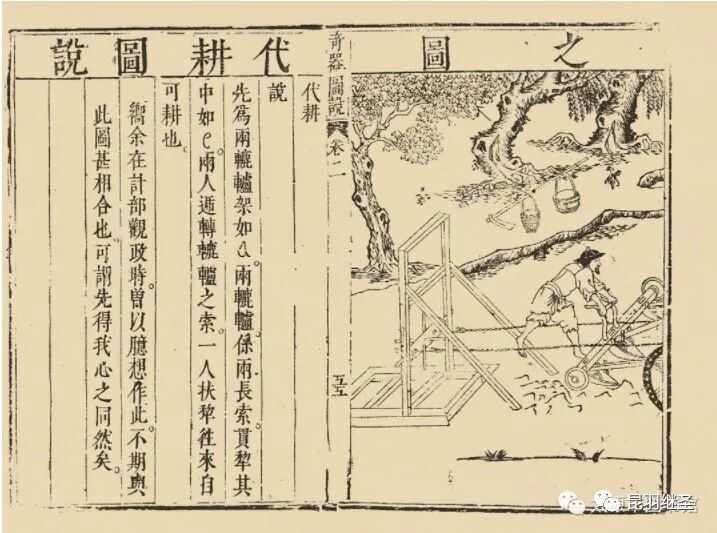 之圖
奇器圖說 卷二
代耕圖說
代耕
說
先爲兩轆轤架如a。兩轆轤。係兩長索貫犁其
中如e。兩人遞轉轆轤之索。一人扶犂往來自
可耕也。
嚮余在計部觀政時。曾以臆想作此。不期與
此圖甚相合也。可謂先得我心之同然矣。
昆羽继圣